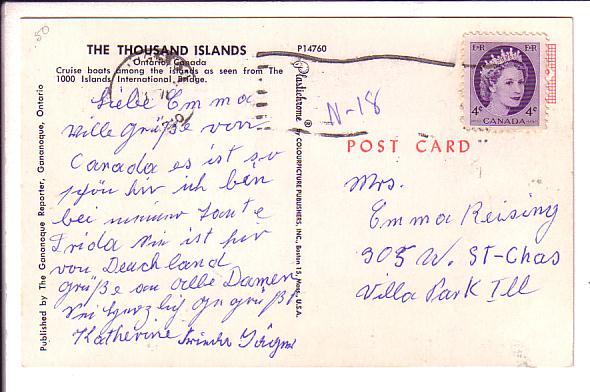 THE THOUSAND ISLANDS
Ontario, Canada
Cruise boats among the islands as seen from The
1000 Islands International Bridge.
P14760
Liebe Emma
ville Grüße von
Canada es ist so
schön hir ich bin
bei meiner Tante
Frida Sie ist hir
von Deuchland
grüße an alle Damen
Sei herzlich gegrüßt
Katherine
Published by The Gananoque Reporter, Gananoque, Ontario
Plastichrome ® by COLOURPICTURE PUBLISHERS, INC., Boston 15, Mass., U.S.A.
N-18
E R E R
4¢ 4¢
CANADA
POST CARD
Mrs.
Emma Reising
305 W. St-Chas
Villa Park Ill